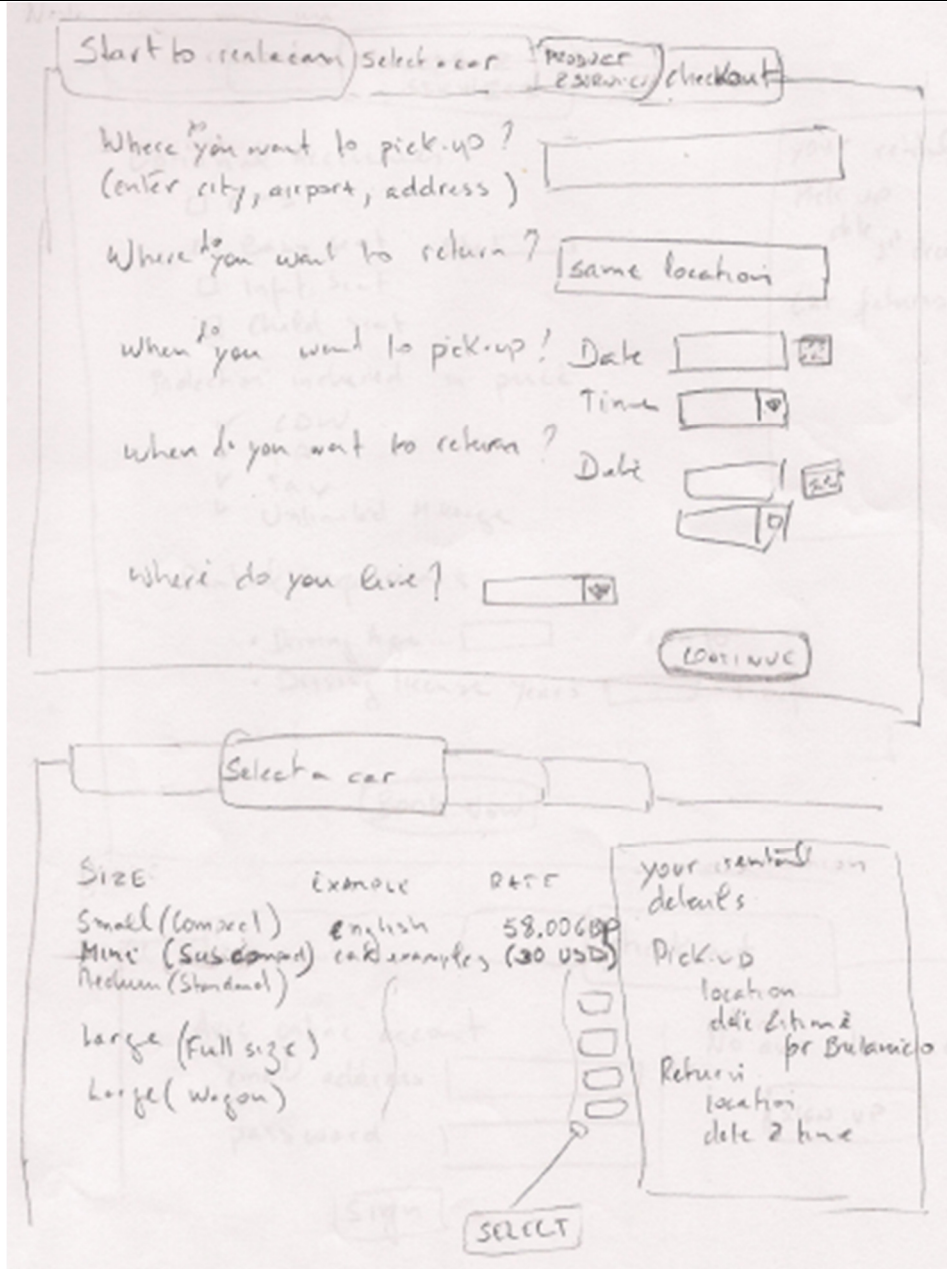 Start to rent a car
Select a car
PRODUCT
& SERVICES
Checkout
Where do you want to pick-up?
(enter city, airport, address)
Where do you want to return?
same location
When do you want to pick-up?
Date
Time
When do you want to return?
Date
Where do you live?
CONTINUE
Select a car
SIZE EXAMPLE RATE
Small (Compact) english 58.00 GBP
Mini (Subcompact) car examples (30 USD)
Medium (Standard)
Large (Full size)
Large (Wagon)
SELECT
your rental
details
Pick-up
location
date & time
Return
location
date & time